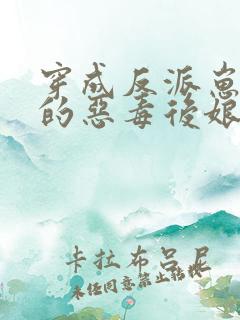 穿成反派崽
的惡毒後娘
卡拉布呂尼
未经同意禁止转载